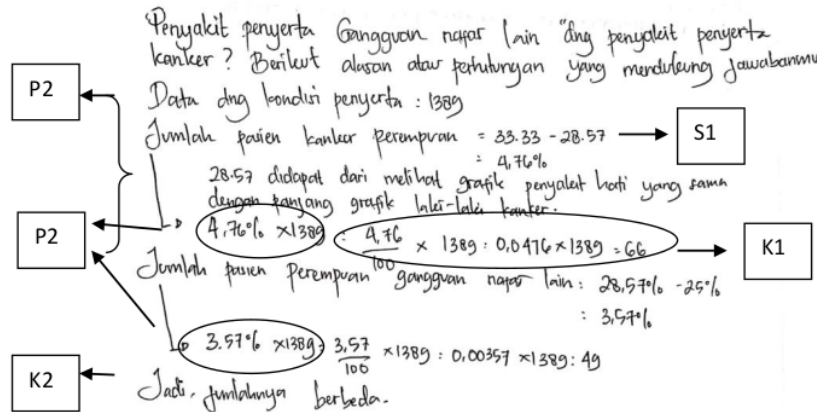 Penyakit penyerta Gangguan nafas lain "dng penyakit penyerta
kanker? Berikut alasan atau perhitungan yang mendukung jawabanmu
P2
Data dng kondisi penyerta : 1389
Jumlah pasien kanker perempuan = 33.33 - 28.57
S1
: 4,76%
28.57 didapat dari melihat grafik penyakit hati yang sama
dengan panjang grafik laki-laki kanker.
P2
4,76% x1389 : 4,76/100 x 1389 : 0,0476 x 1389 = 66
K1
Jumlah pasien perempuan gangguan nafas lain : 28,57% - 25%
: 3,57%
3.57% x1389 : 3,57/100 x1389 : 0,00357 x 1389 : 49
K2
Jadi, jumlahnya berbeda.